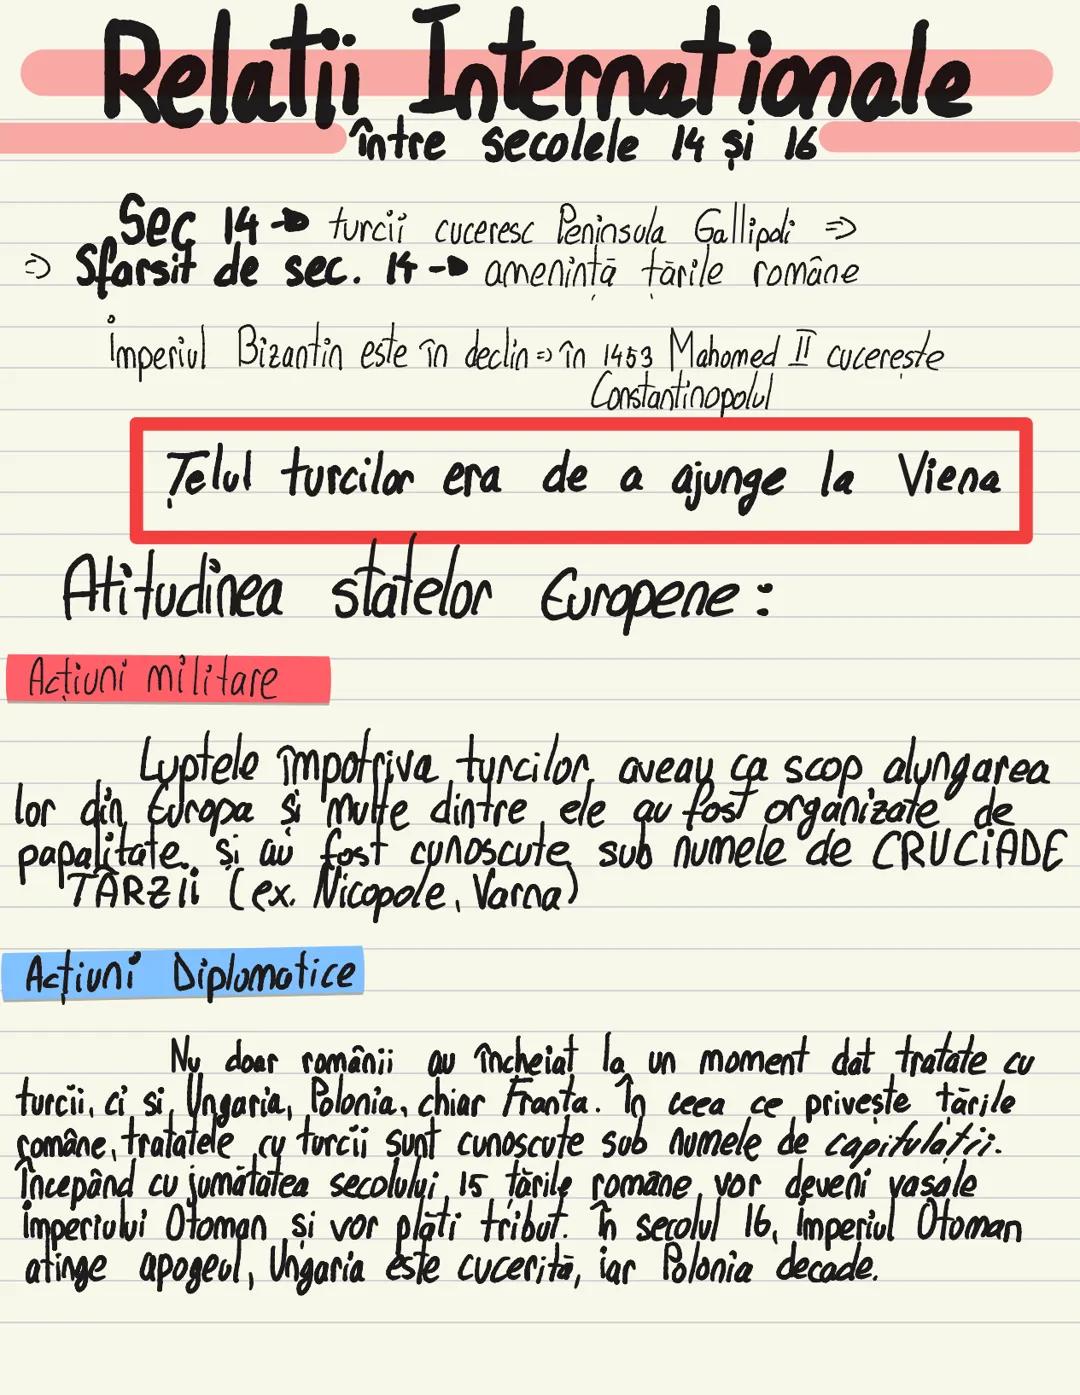 Relatii Internationale
între secolele 14 și 16
Sec 14 → turcii cuceresc Peninsula Gallipoli =>
=> Sfarsit de sec. 14 → amenință tările române
Imperiul Bizantin este în declin => în 1453 Mahomed II cucerește
Constantinopolul
Țelul turcilor era de a ajunge la Viena
Atitudinea statelor Europene:
Acțiuni militare
Luptele împotriva turcilor aveau ca scop alungarea
lor din Europa și multe dintre ele au fost organizate de
papalitate și au fost cunoscute sub numele de CRUCIADE
TÂRZII (ex. Nicopole, Varna)
Acțiuni Diplomatice
Nu doar românii au încheiat la un moment dat tratate cu
turcii, ci si Ungaria, Polonia, chiar Franta. În ceea ce privește tările
române, tratatele cu turcii sunt cunoscute sub numele de capitulații.
Începând cu jumătatea secolului 15 tările române vor deveni vasale
Imperiului Otoman și vor plăti tribut. În secolul 16, Imperiul Otoman
atinge apogeul, Ungaria este cucerită, iar Polonia decade.